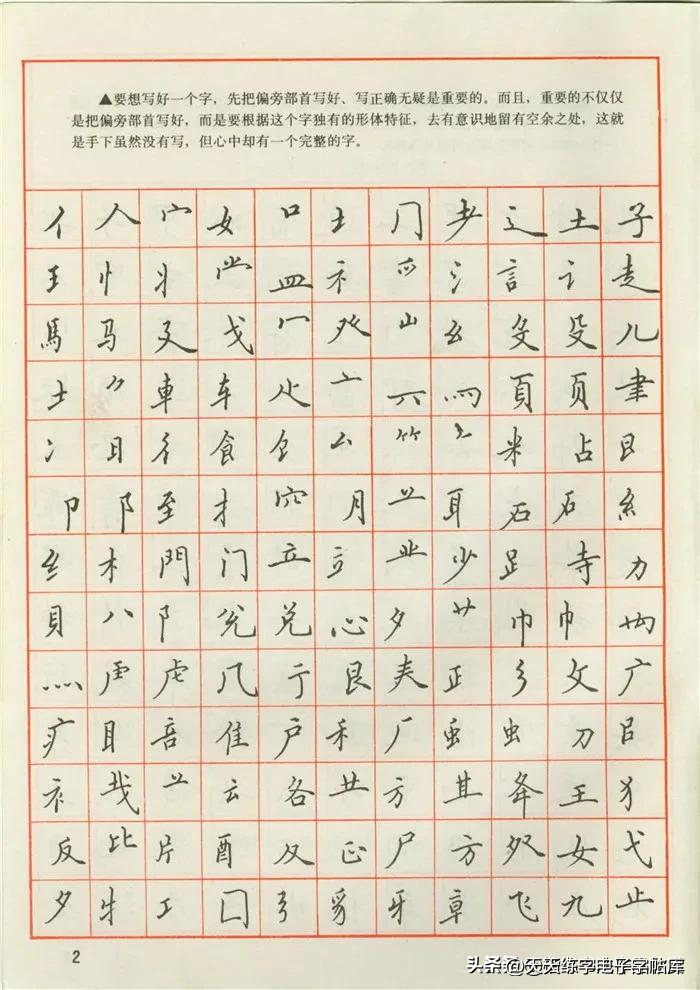 ▲要想写好一个字，先把偏旁部首写好、写正确无疑是重要的。而且，重要的不仅仅
是把偏旁部首写好，而是要根据这个字独有的形体特征，去有意识地留有空余之处，这就
是手下虽然没有写，但心中却有一个完整的字。
亻人宀女口土门耂辶土子
王忄丬龸皿礻爫氵言讠走
馬马廴戈冖癶山幺殳殳儿
士〃車车亠六罒頁页聿
冫日彳食亼厶米占艮
卩阝至扌穴月䒑耳石石糹
纟木門门立豆业少足寺力
貝八阝兑兑心夕艹巾巾
灬虍虍几亍艮夹正彡攵广
疒目音隹户禾厂虽虫刀
衤云各龷方其夅王犭
反比片酉及正尸方女弋
夕牜工囗弓豸牙章飞九止
2
头条@天天练字电子字帖库